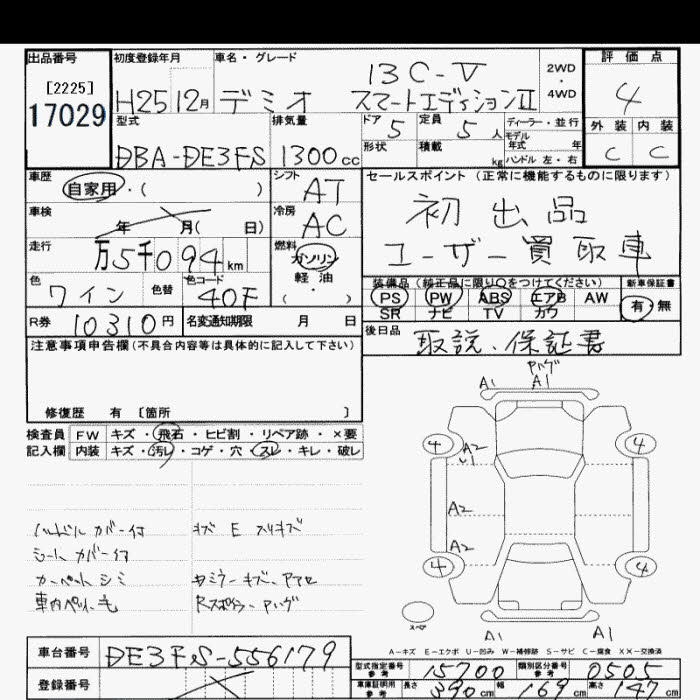 出品番号
[2225]
17029
初度登録年月
H25 12月
車名・グレード
13C-V
デミオ スマートエディションII
2WD
・
4WD
評価点
4
外装 内装
C C
型式
DBA-DE3FS
排気量
1300cc
ドア 5
定員 5人
形状
積載 kg
ディーラー・並行
モデル年式 年
ハンドル 左・右
車歴
自家用・( )
シフト
AT
車検
年 月( 日)
冷房
AC
走行
万5千094km
燃料
ガソリン
軽油
( ・ )
色
ワイン
色替
色コード
40F
R券 10310円
名変通知期限 月 日
セールスポイント (正常に機能するものに限ります)
初出品
ユーザー買取車
装備品 (純正品に限り○をつけてください)
PS PW ABS エアB AW
SR ナビ TV カワ
新車保証書
有・無
後日品
取説、保証書
注意事項申告欄(不具合内容等は具体的に記入して下さい)
修復歴 有 〔箇所 〕
検査員 FW キズ・飛石・ヒビ割・リペア跡・×要
記入欄 内装 キズ・汚レ・コゲ・穴・スレ・キレ・破レ
ハンドルカバー付
シートカバー付
カーペットシミ
車内ペット毛
キズ E スリキズ
Rスポイラー ハゲ
ハゲ
A1 A1
4 4
A2
A2
A2
4 4
スペア
A1 A1
A-キズ E-エクボ U-凹み W-補修跡 S-サビ C-腐食 XX-交換済
車台番号 DE3FS-556179
登録番号
型式指定番号 参考 15700
類別区分番号 参考 0505
車庫証明用 参考 長さ 390cm 幅 169cm 高さ 147cm